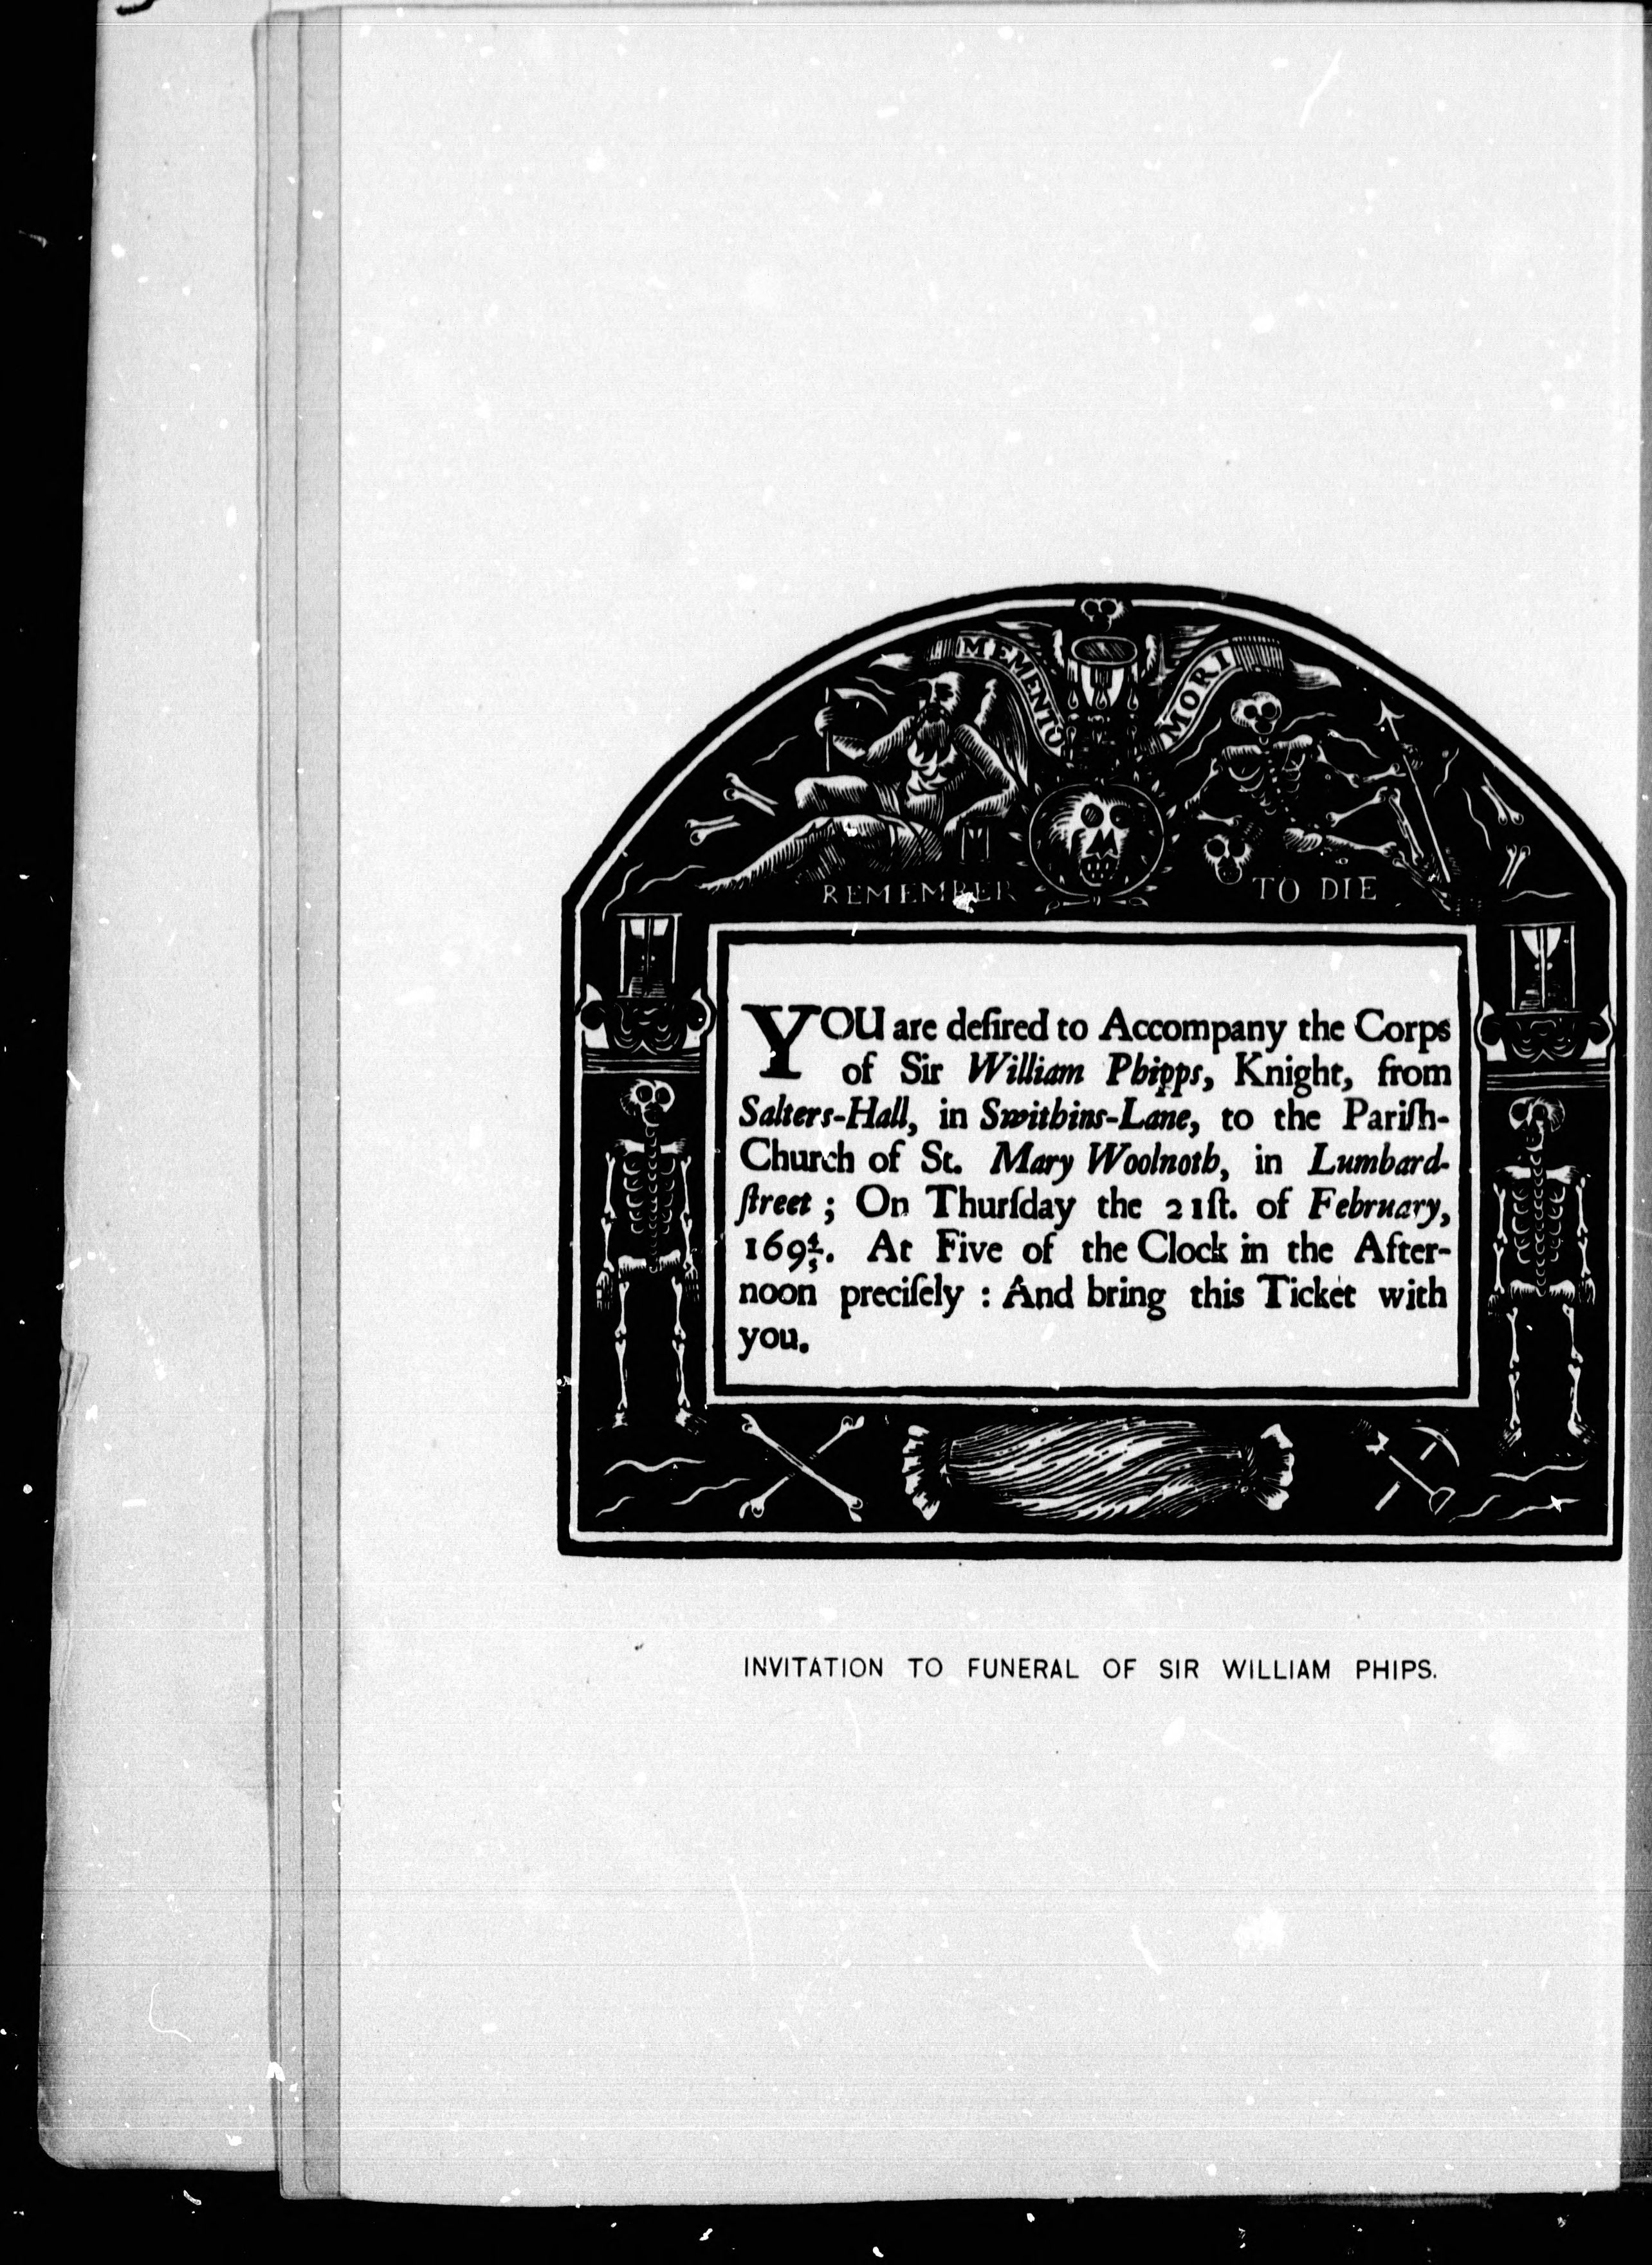 MEMENTO MORI
REMEMBER TO DIE
YOU are deſired to Accompany the Corps
of Sir William Phipps, Knight, from
Salters-Hall, in Swithins-Lane, to the Pariſh-
Church of St. Mary Woolnoth, in Lumbard-
ſtreet ; On Thurſday the 21ſt. of February,
169⅘. At Five of the Clock in the After-
noon preciſely : And bring this Ticket with
you.
INVITATION TO FUNERAL OF SIR WILLIAM PHIPS.